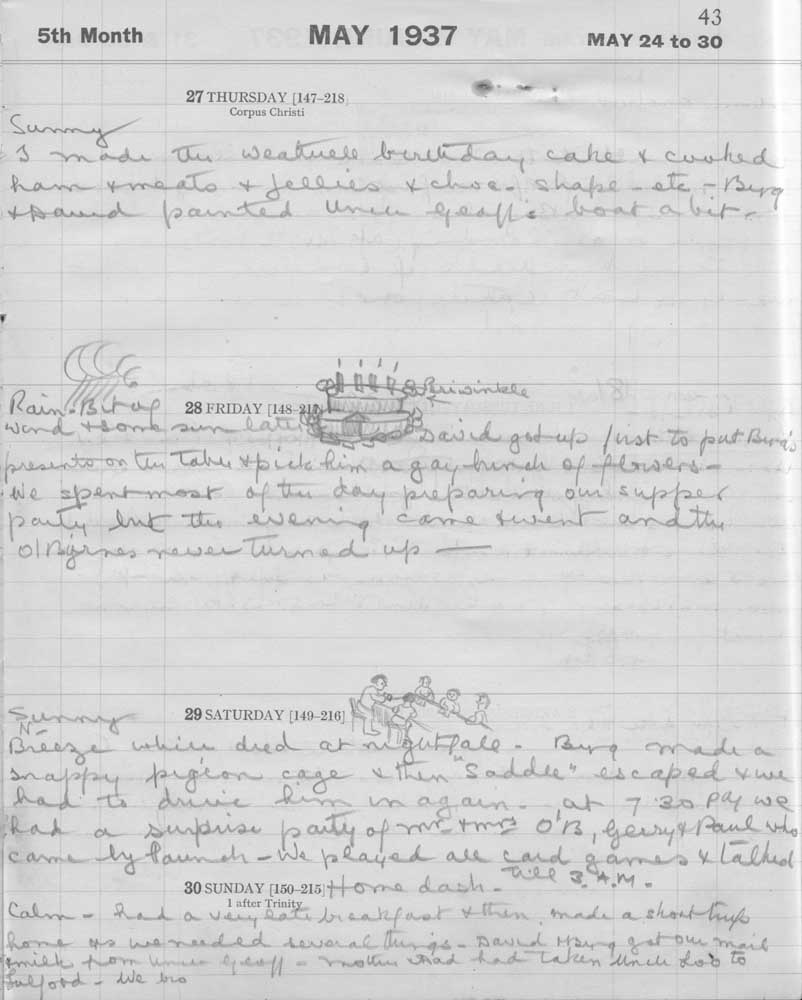 43
5th Month MAY 1937 MAY 24 to 30
27 THURSDAY [147–218
Corpus Christi
Sunny
I made the birthday cake & cooked
ham & meats & jellies & choc- shape - etc - Berg
& David painted Uncle Geoff's boat a bit -
Periwinkle
Rain - Bit of 28 FRIDAY [148–217]
wind & some sun late David got up first to put Berg's
presents on the table & pick him a gay bunch of flowers -
We spent most of the day preparing our supper
party but the evening came & went and the
O'Byrnes never turned up —
Sunny 29 SATURDAY [149–216]
N -
Breeze which died at nightfall - Berg made a
snappy pigeon cage & then "Saddle" escaped & we
had to drive him in again - at 7.30 PM we
had a surprise party of Mr & Mrs O'B, Gerry & Paul who
came by launch - We played all card games & talked
till 3. A.M. -
30 SUNDAY [150–215] Home dash -
1 after Trinity
Calm - had a very late breakfast & then made a short trip
home as we needed several things - David & Berg got our mail
& milk from Uncle Geoff - Mother had had taken Uncle to
Fulford - We